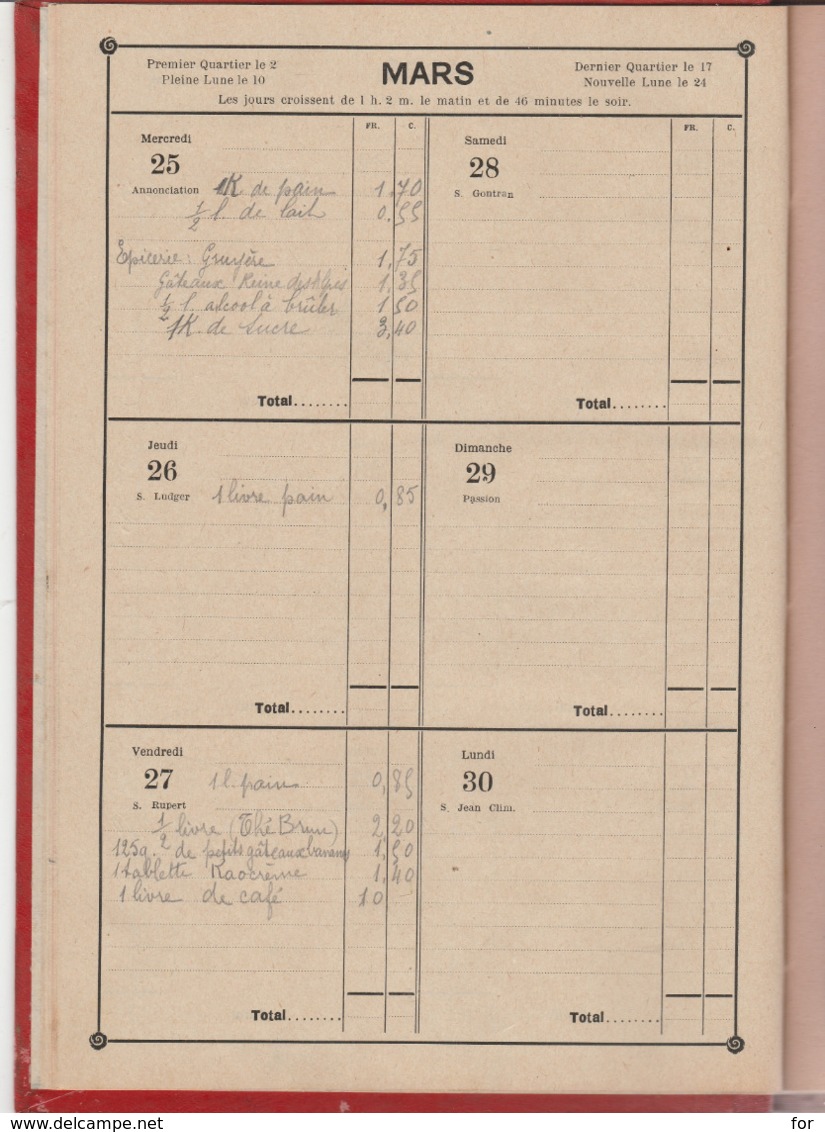 Premier Quartier le 2
Pleine Lune le 10
MARS
Dernier Quartier le 17
Nouvelle Lune le 24
Les jours croissent de 1 h. 2 m. le matin et de 46 minutes le soir.
FR. C.
Mercredi
25
Annonciation 1K de pain 1,70
1/2 l. de lait 0.55
Epicerie: Gruyère 1,75
Gâteaux Reine des Alpes 1,35
1/2 l. alcool à brûler 1 50
1K. de sucre 3,40
Total........
Jeudi
26
S. Ludger 1 livre pain 0,85
Total........
Vendredi
27 1 l. pain 0,85
S. Rupert
1/2 livre (Thé Brun) 2,20
125g. de petits gâteaux bananes 1,50
1 tablette Kaocrème 1,40
1 livre de café 10
Total........
FR. C.
Samedi
28
S. Gontran
Total........
Dimanche
29
Passion
Total........
Lundi
30
S. Jean Clim.
Total........
for